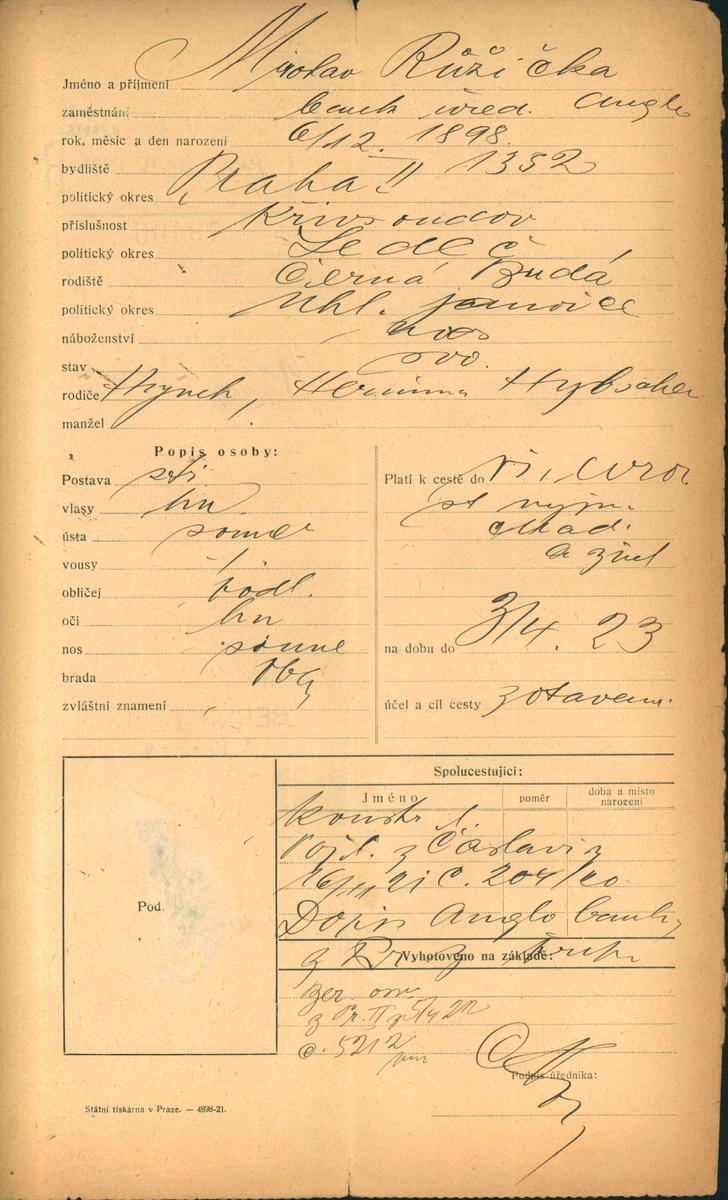 Jméno a příjmení Miroslav Růžička
zaměstnání bank. úřed. Anglo
rok, měsíc a den narození 6/12. 1898.
bydliště Praha II 1352
politický okres
příslušnost Křivsoudov
politický okres Ledeč
rodiště Černá Budá
politický okres Uhl. Janovice
náboženství
stav svo.
rodiče Hynek, Hermina Hybscher
manžel
Popis osoby:
Postava stř.
vlasy hn.
ústa soumě
vousy /
obličej podl.
oči hn
nos soumě
brada obl
zvláštní znamení
Platí k cestě do
st vyjm.
a
na dobu do 3/4. 23
účel a cíl cesty zotavení.
Spolucestující:
Jméno poměr doba a místo narození
z Čáslavi z
č. 204/20
Dopis Anglo banky
z Pr z
Vyhotoveno na základě:
z Pr. II z 22
č. 5212
Pod.
Podpis úředníka:
Státní tiskárna v Praze. — 4898-21.